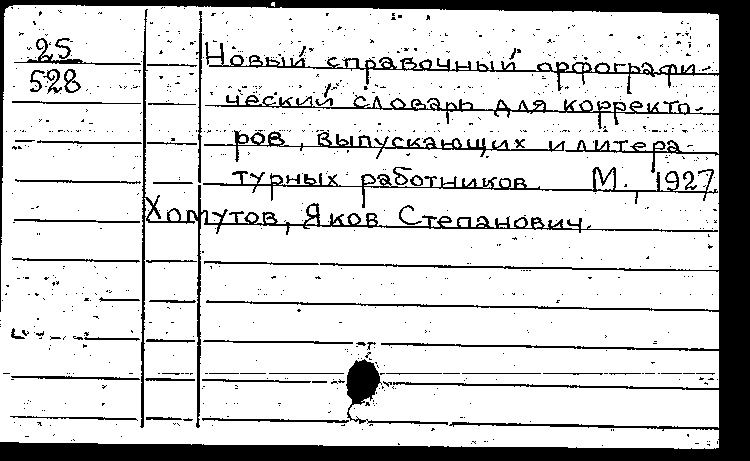 25
528
Новый справочный орфографи-
ческий словарь для корректо-
ров, выпускающих и литера-
турных работников. М., 1927
Хомутов, Яков Степанович.